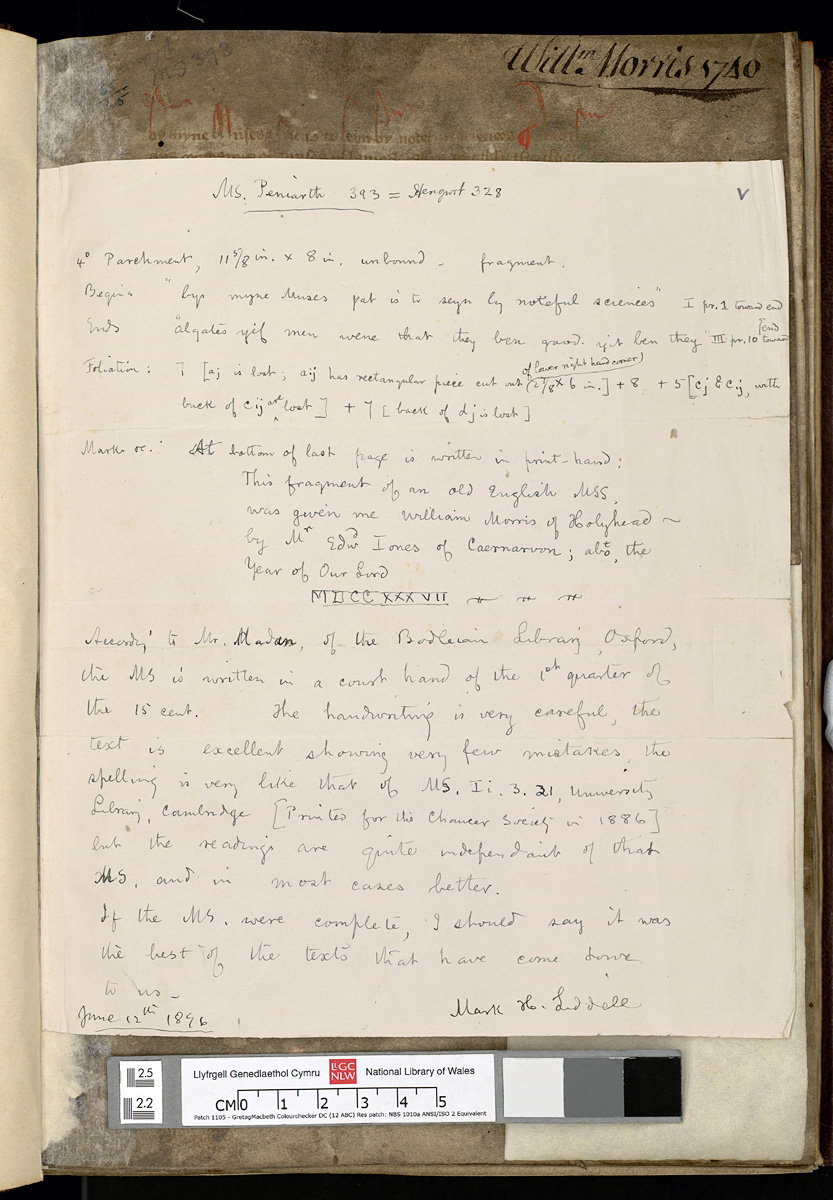 MS 393
Will<sup>m</sup> Morris 1740
by myne Muses
MS. Peniarth 393 = Hengwrt 328
v
4° Parchment, 11 5/8 in. x 8 in. unbound - fragment.
Begins "by myne Muses þat is to seyn by noteful sciences" I pr. 1 toward end
Ends "algates yif men wene that they ben good. yit ben they" III pr. 10 toward [end
Foliation: 7 [aj is lost; aij has rectangular piece cut out of lower right hand corner (2 7/8 x 6 in.] + 8 + 5 [cj & cij, with
back of cij are lost] + 7 [back of dj is lost]
Marks &c.: At bottom of last page is written in print-hand:
This fragment of an old English MSS,
was given me William Morris of Holyhead ~
by Mr Edwd Iones of Caernarvon; abt, the
Year of Our Lord
MDCCXXXVII
Accordg to Mr. Madan, of the Bodleian Library, Oxford,
the MS is written in a court hand of the 1st quarter of
the 15 cent. The handwriting is very careful, the
text is excellent showing very few mistakes, the
spelling is very like that of MS. Ii. 3. 21, University
Library, Cambridge [Printed for the Chaucer Society in 1886]
but the readings are quite independant of that
MS, and in most cases better.
If the MS. were complete, I should say it was
the best of the texts that have come down
to us -
June 12th 1896
Mark H. Liddell
2.5
2.2
Llyfrgell Genedlaethol Cymru LlGC NLW National Library of Wales
CM 0 1 2 3 4 5
Patch 1105 - GretagMacbeth Colourchecker DC (12 ABC) Res patch: NBS 1010a ANSI/ISO 2 Equivalent